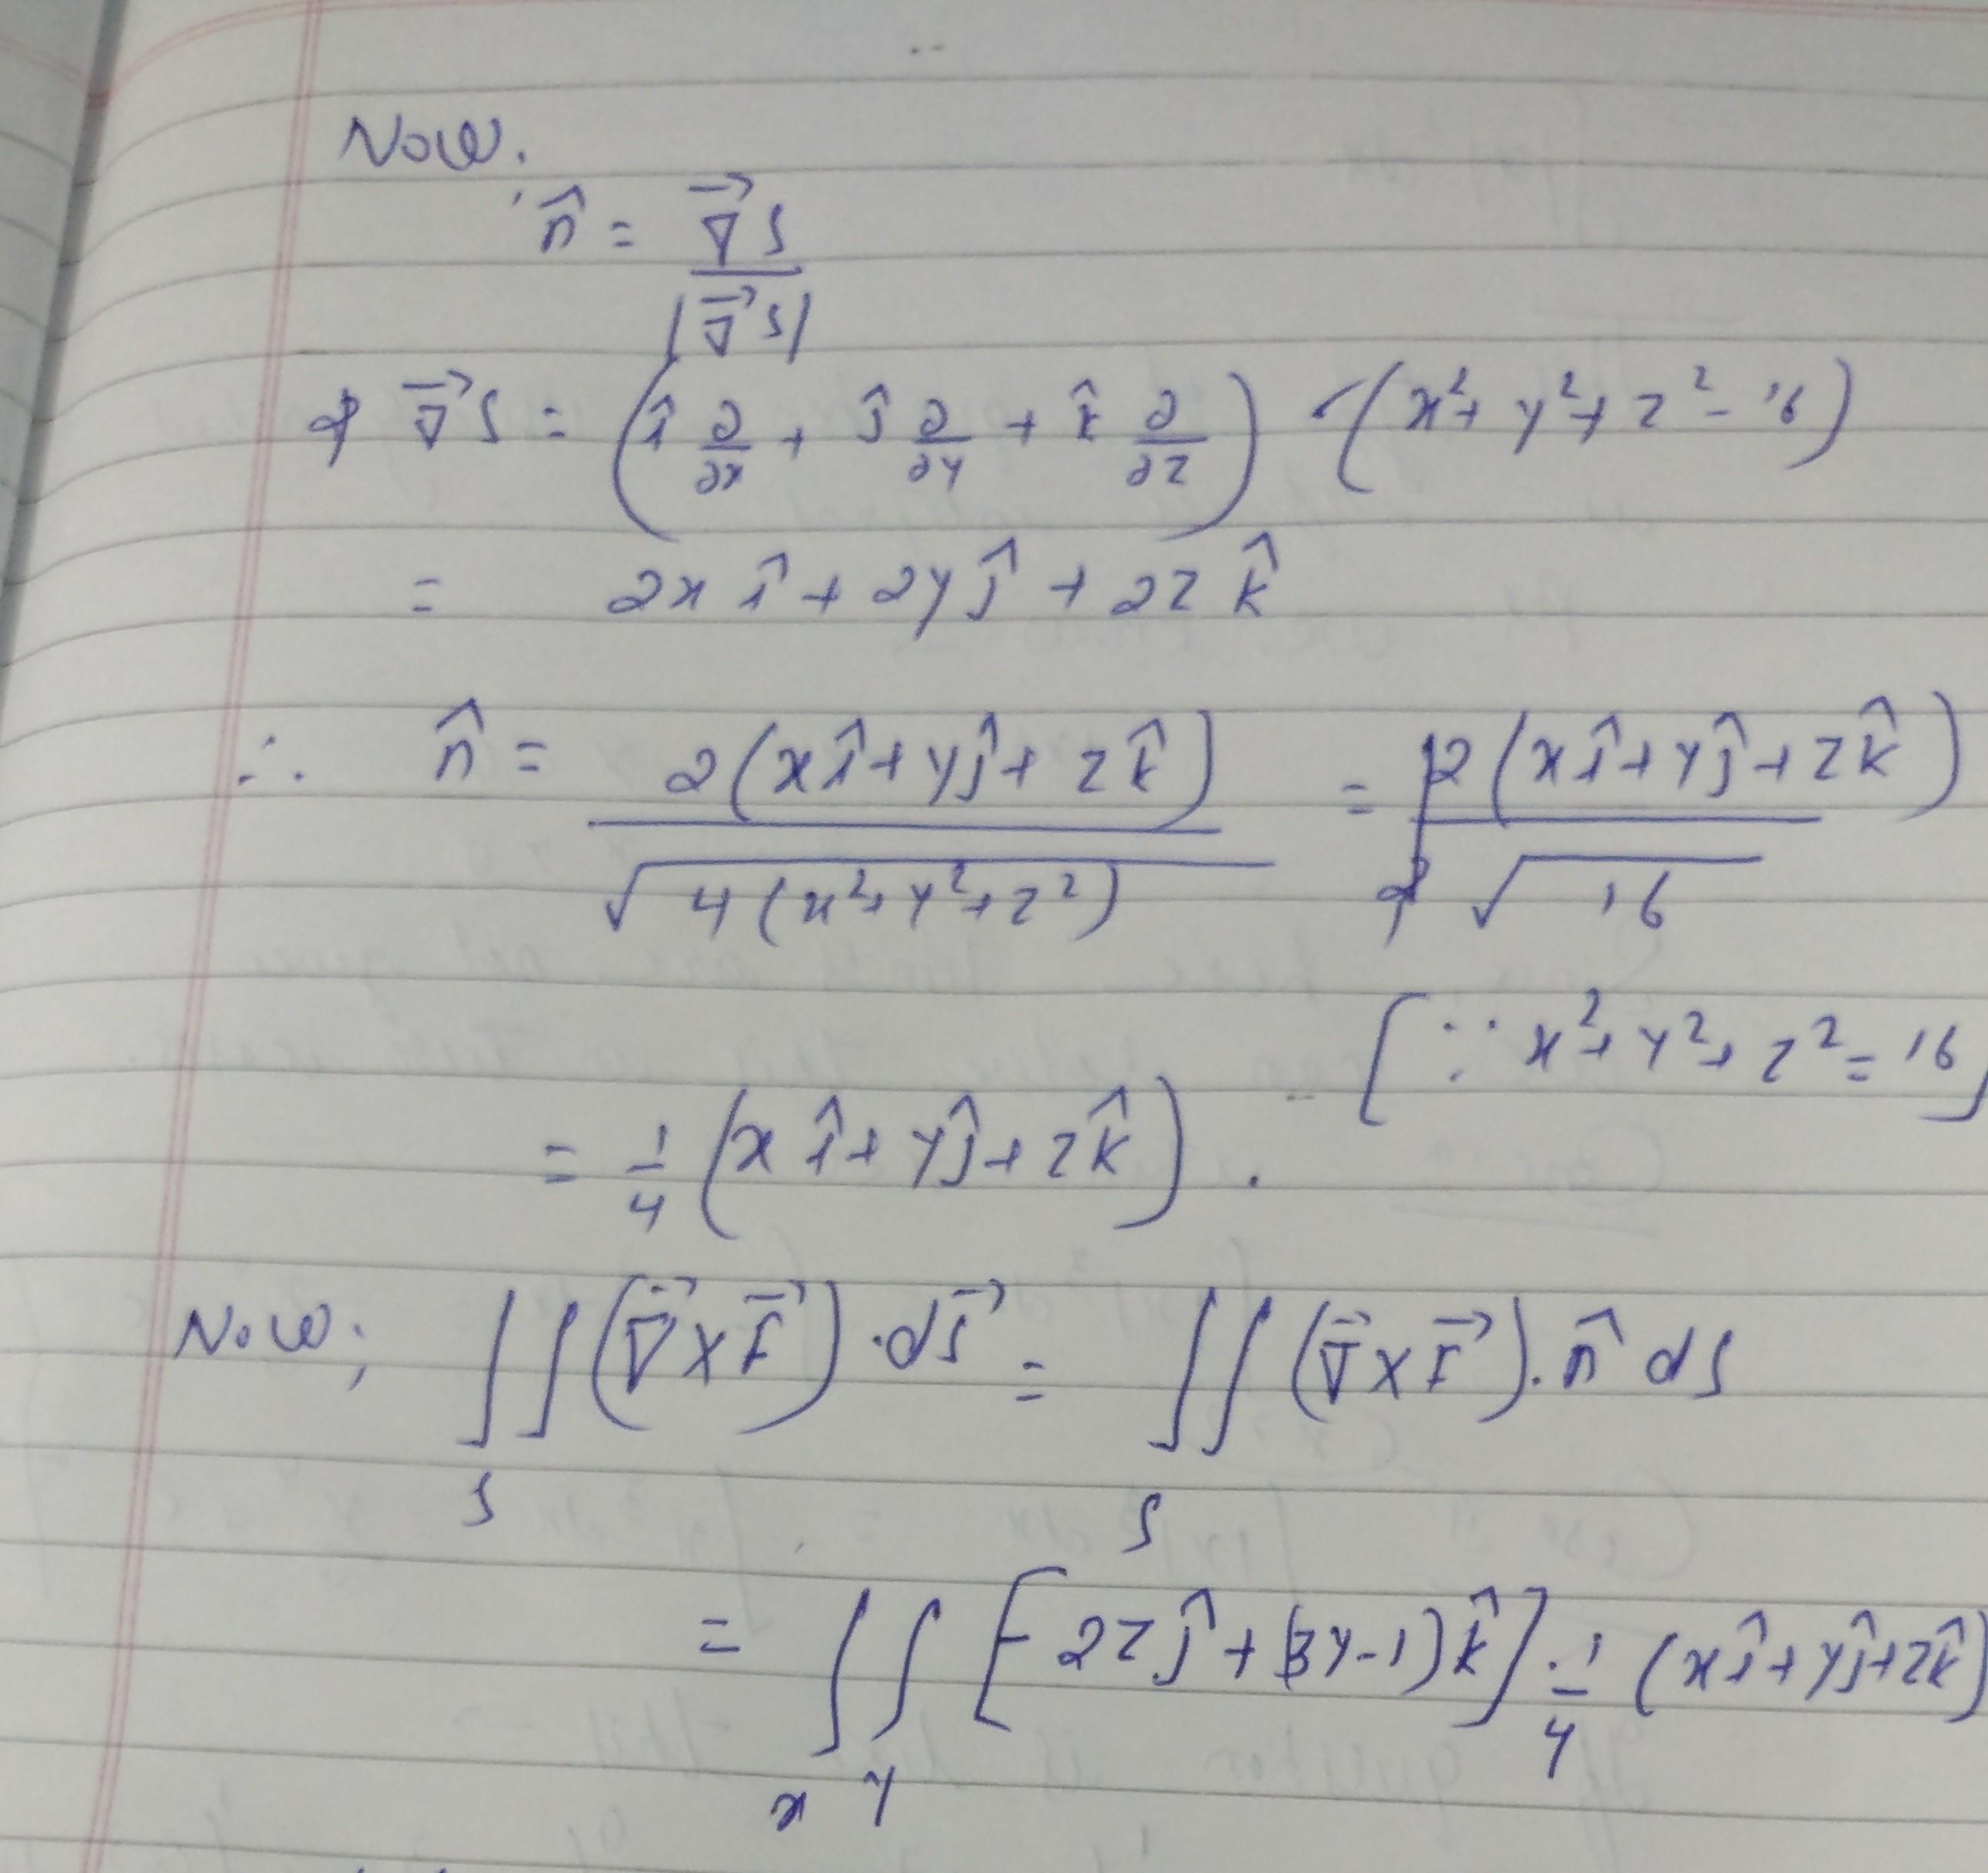 Now.
n̂ = ∇⃗S / |∇⃗S|
& ∇⃗S = (î ∂/∂x + ĵ ∂/∂y + k̂ ∂/∂z) (x² + y² + z² - 16)
= 2x î + 2y ĵ + 2z k̂
∴ n̂ = 2(xî + yĵ + zk̂) / √4(x² + y² + z²) = 2(xî + yĵ + zk̂) / 2√16
[∵ x² + y² + z² = 16]
= 1/4 (xî + yĵ + zk̂).
Now; ∬_S (∇⃗ × F⃗) · dS⃗ = ∬_S (∇⃗ × F⃗) · n̂ dS
= ∫_x ∫_y [-2zĵ + (3y-1)k̂] · 1/4 (xî + yĵ + zk̂)